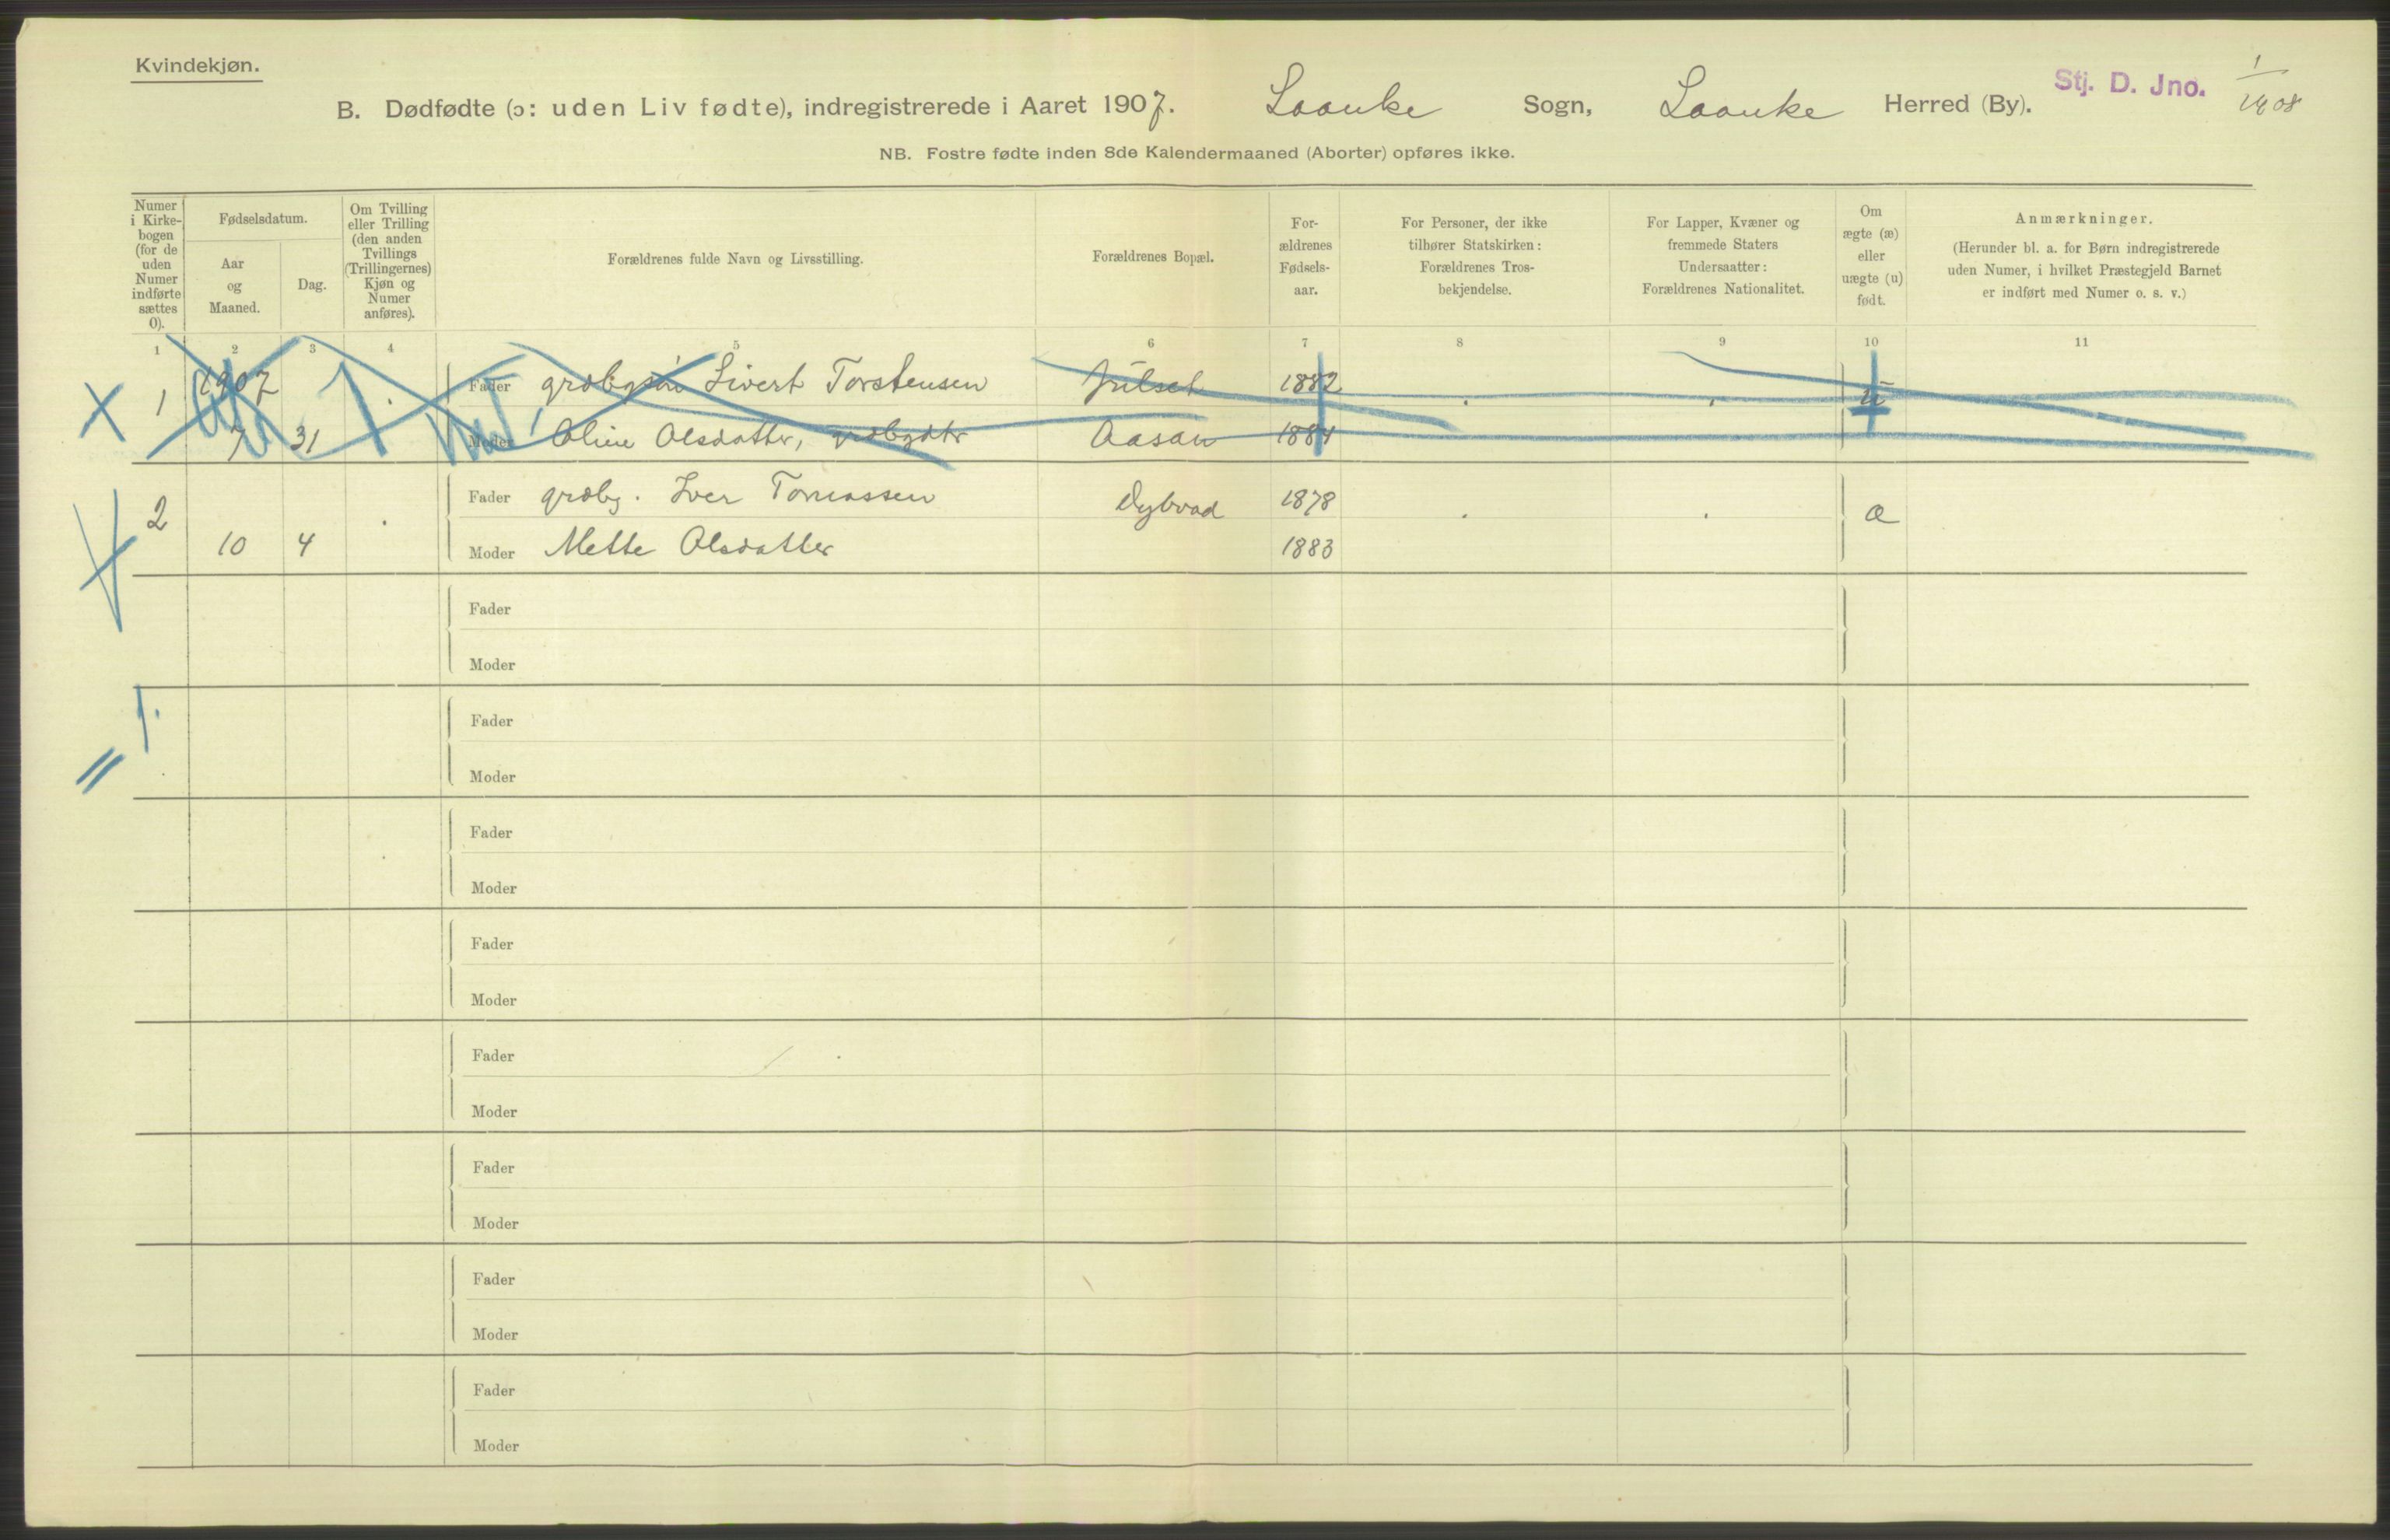 Kvindekjøn.
B. Dødfødte (ɔ: uden Liv fødte), indregistrerede i Aaret 1907. Laanke Sogn, Laanke Herred (By). Stj. D. Jno. 1/1908
NB. Fostre fødte inden 8de Kalendermaaned (Aborter) opføres ikke.
Numer
i Kirke-
bogen
(for de
uden
Numer
indførte
sættes
0).
Fødselsdatum.
Aar
og
Maaned.
Dag.
Om Tvilling
eller Trilling
(den anden
Tvillings
(Trillingernes)
Kjøn og
Numer
anføres).
Forældrenes fulde Navn og Livsstilling.
Forældrenes Bopæl.
For-
ældrenes
Fødsels-
aar.
For Personer, der ikke
tilhører Statskirken:
Forældrenes Tros-
bekjendelse.
For Lapper, Kvæner og
fremmede Staters
Undersaatter:
Forældrenes Nationalitet.
Om
ægte (æ)
eller
uægte (u)
født.
Anmærkninger.
(Herunder bl. a. for Børn indregistrerede
uden Numer, i hvilket Præstegjeld Barnet
er indført med Numer o. s. v.)
1 2 3 4 5 6 7 8 9 10 11
1 1907 Fader Sivert Torstensen 1882 u
7 31 Moder Oline Olsdatter, Aasan 1884
2 Fader grdbr. Iver Tomassen Dybvad 1878 æ
10 4 Moder Mette Olsdatter 1883
Fader
Moder
1.
Fader
Moder
Fader
Moder
Fader
Moder
Fader
Moder
Fader
Moder
Fader
Moder
Fader
Moder